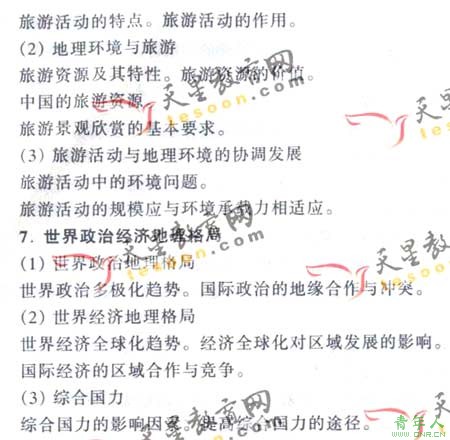 旅游活动的特点。旅游活动的作用。
(2) 地理环境与旅游
旅游资源及其特性。旅游资源的价值。
中国的旅游资源。
旅游景观欣赏的基本要求。
(3) 旅游活动与地理环境的协调发展
旅游活动中的环境问题。
旅游活动的规模应与环境承载力相适应。
7. 世界政治经济地理格局
(1) 世界政治地理格局
世界政治多极化趋势。国际政治的地缘合作与冲突。
(2) 世界经济地理格局
世界经济全球化趋势。经济全球化对区域发展的影响。
国际经济的区域合作与竞争。
(3) 综合国力
综合国力的影响因素。提高综合国力的途径。
天星教育网
tesoon.com
天星教育网
tesoon.com
天星教育网
tesoon.com
天星教育网
tesoon.com
天星教育网
tesoon.com
青年人